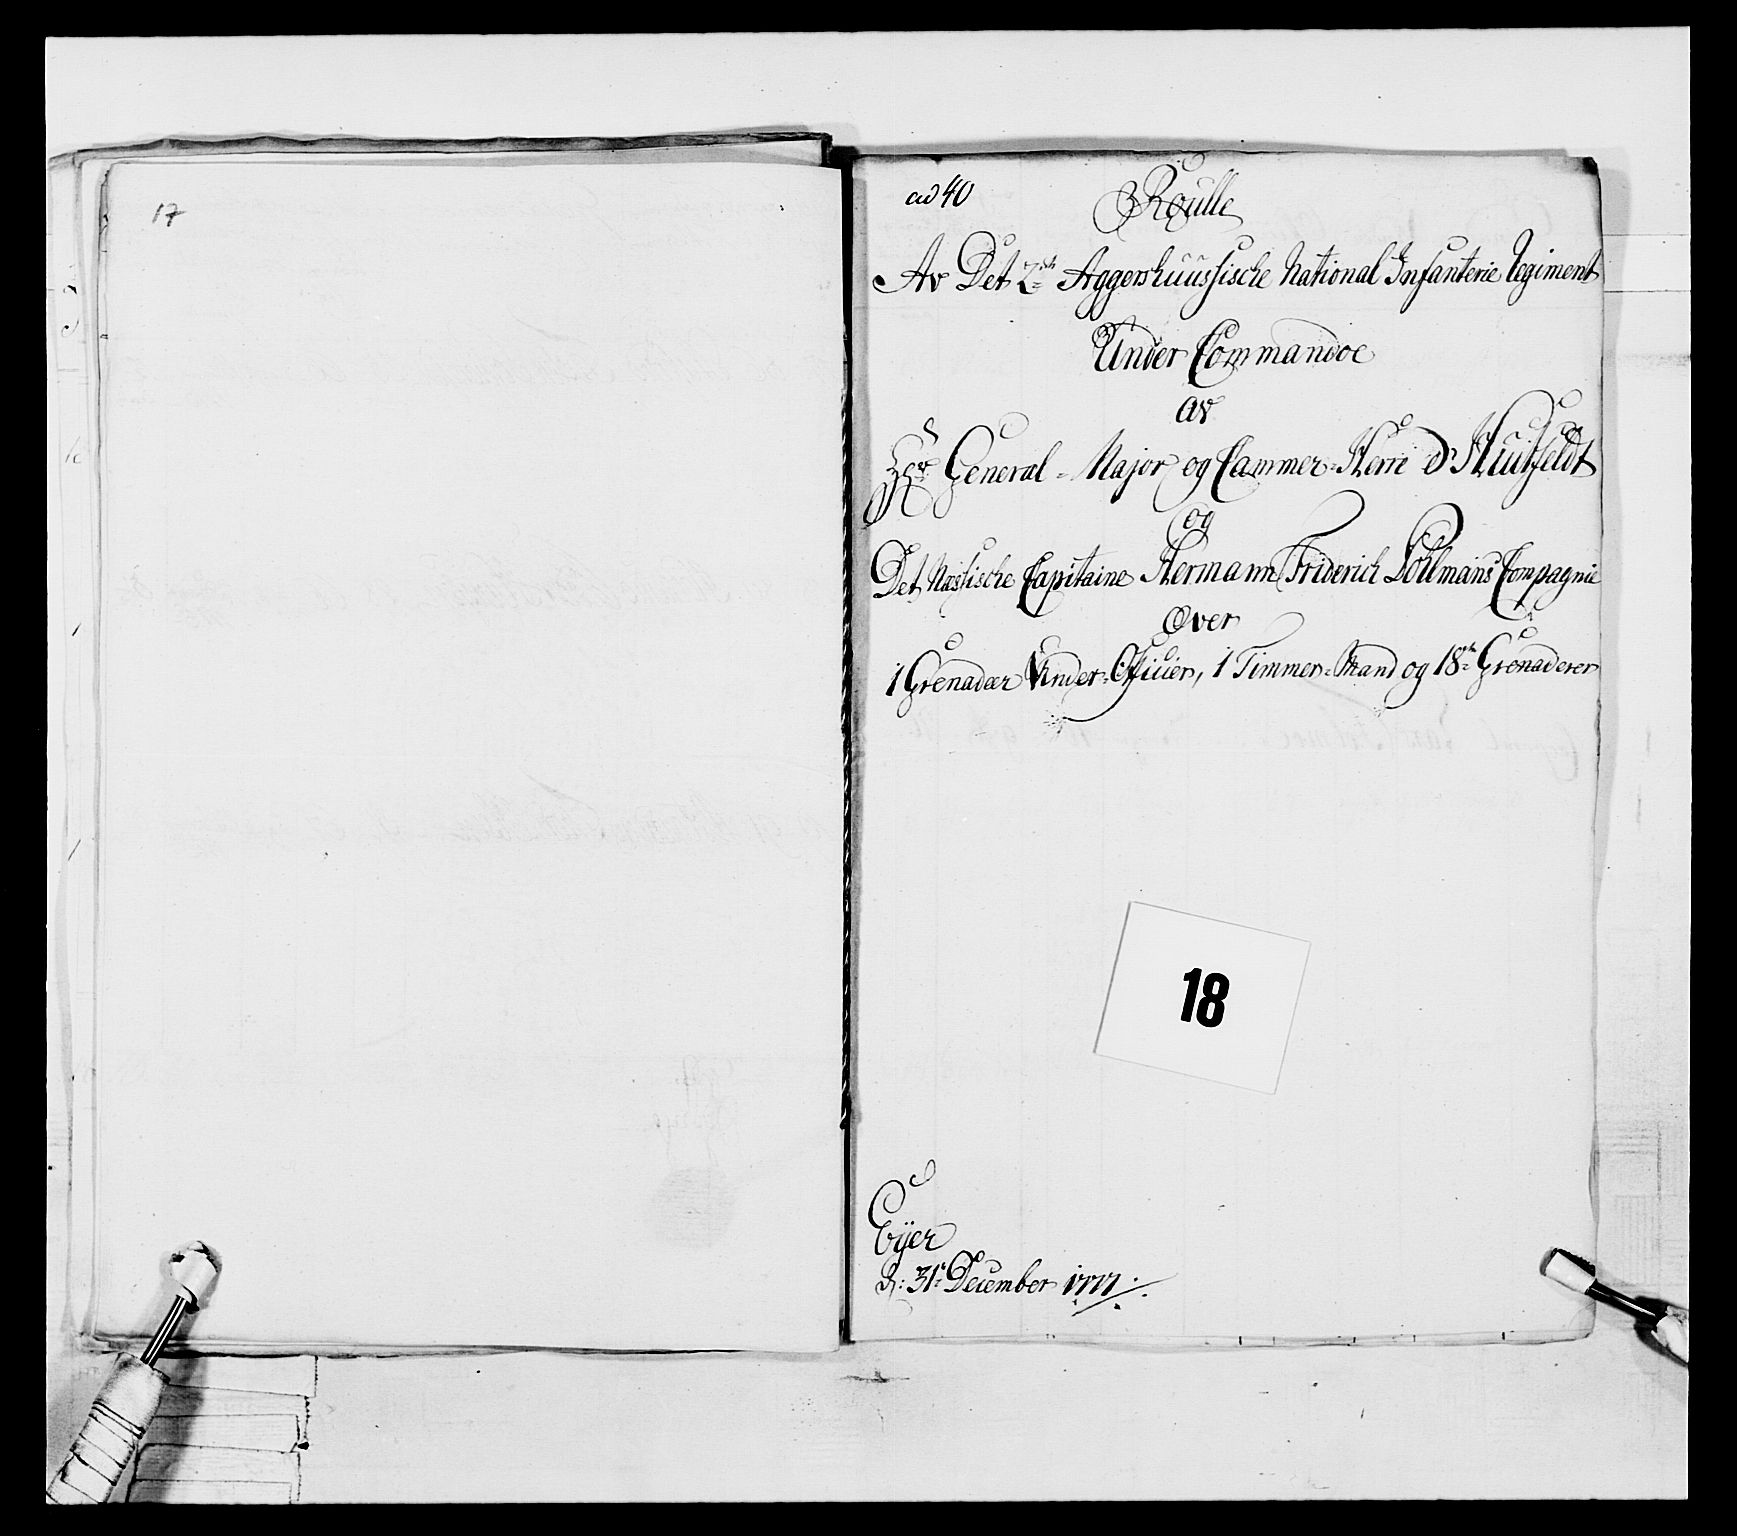 17
ad 40
Roulle
Av Det 2de Aggershuusische National Infanterie Regiment
Under Commandoe
av
Hr General-Major og Cammer-Herre d'Huitfeldt
og
Det Næssische Capitaine Hermann Friderich Döhlmans Compagnie
Over
1 Grenadeer Under-Officier, 1 Timmer-Mand og 18ten Grenaderer
18
Eyer
d: 31te December 1777.